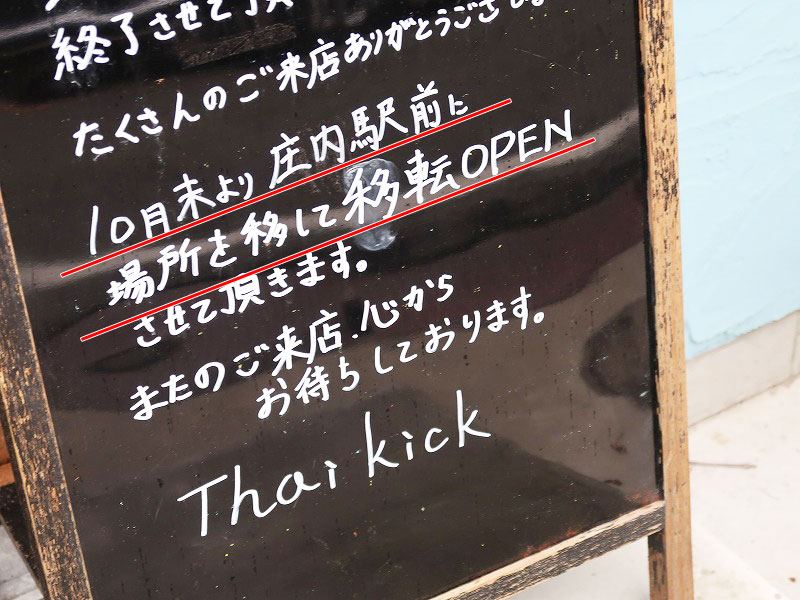 終了させて頂
たくさんのご来店ありがとうござい
10月末より庄内駅前に
場所を移して移転OPEN
させて頂きます。
またのご来店、心から
お待ちしております。
Thai kick